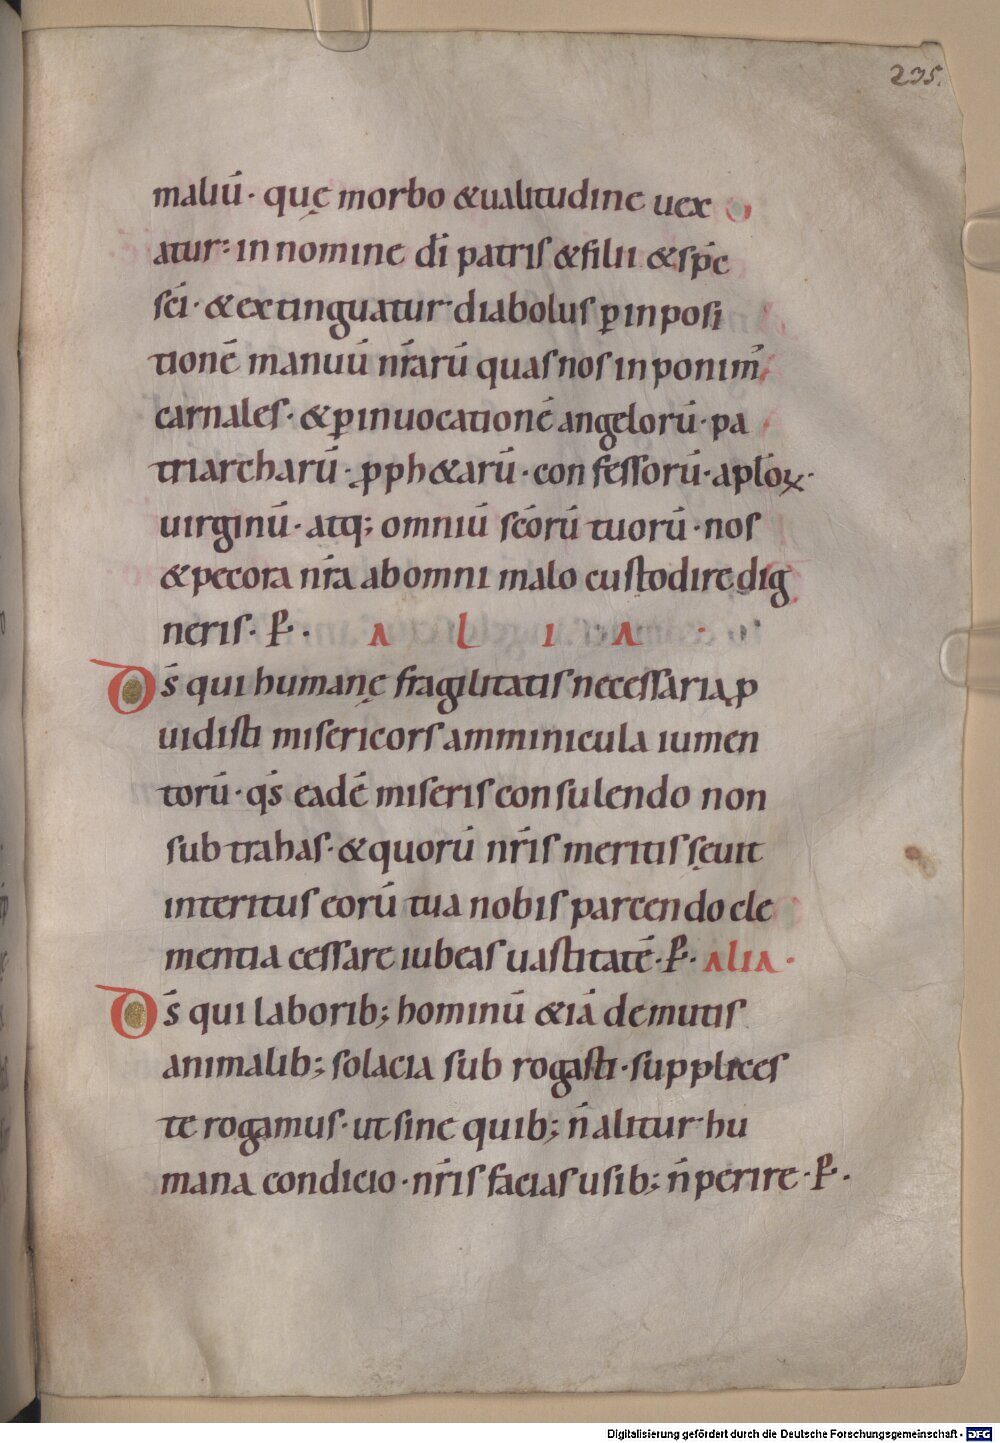 235.
maliū· quę morbo &ualitudine uex
atur: in nomine dī patris &filii &sp̄c
sc̄i· &extinguatur diabolus ꝑ inposi
tionē manuū nr̄arū quas nos inponim̄
carnales· &ꝑ inuocationē angelorū· pa
triarcharū· ꝓph&arū· confessorū· aplōꝝ·
uirginū· atq; omniū sc̄orū tuorū· nos
&pecora nr̄a ab omni malo custodire dig
neris· P̄· A L I A ·
Ds̄ qui humanę fragilitatis necessaria ꝓ
uidisti misericors amminicula iumen
torū· qs̄ eadē miseris consulendo non
subtrahas· &quorū nr̄is meritis sęuit
interitus eorū tua nobis parcendo cle
mentia cessare iubeas uastitatē· P̄· ALIA·
Ds̄ qui laborib; hominū &iā demutis
animalib; solacia subrogasti· supplices
te rogamus· ut sine quib; n̄ alitur hu
mana condicio· nr̄is facias usib; n̄ perire· P̄·
Digitalisierung gefördert durch die Deutsche Forschungsgemeinschaft - DFG